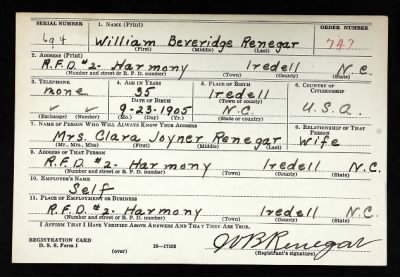 SERIAL NUMBER 1. NAME (Print) ORDER NUMBER
694 William Beveridge Renegar 747
(First) (Middle) (Last)
2. ADDRESS (Print)
R.F.D. #2. Harmony Iredell N.C.
(Number and street or R. F. D. number) (Town) (County) (State)
3. TELEPHONE 4. AGE IN YEARS 5. PLACE OF BIRTH 6. COUNTRY OF CITIZENSHIP
none 35 Iredell
DATE OF BIRTH (Town or county)
9-23-1905 N.C. U.S.A.
(Exchange) (Number) (Mo.) (Day) (Yr.) (State or country)
7. NAME OF PERSON WHO WILL ALWAYS KNOW YOUR ADDRESS 8. RELATIONSHIP OF THAT PERSON
Mrs. Clara Joyner Renegar Wife
(Mr., Mrs., Miss) (First) (Middle) (Last)
9. ADDRESS OF THAT PERSON
R.F.D. #2. Harmony Iredell N.C.
(Number and street or R. F. D. number) (Town) (County) (State)
10. EMPLOYER'S NAME
Self
11. PLACE OF EMPLOYMENT OR BUSINESS
R.F.D. #2. Harmony Iredell N.C.
(Number and street or R. F. D. number) (Town) (County) (State)
I AFFIRM THAT I HAVE VERIFIED ABOVE ANSWERS AND THAT THEY ARE TRUE.
REGISTRATION CARD
D. S. S. Form 1 (over) 16-17105 WB Renegar
(Registrant's signature)